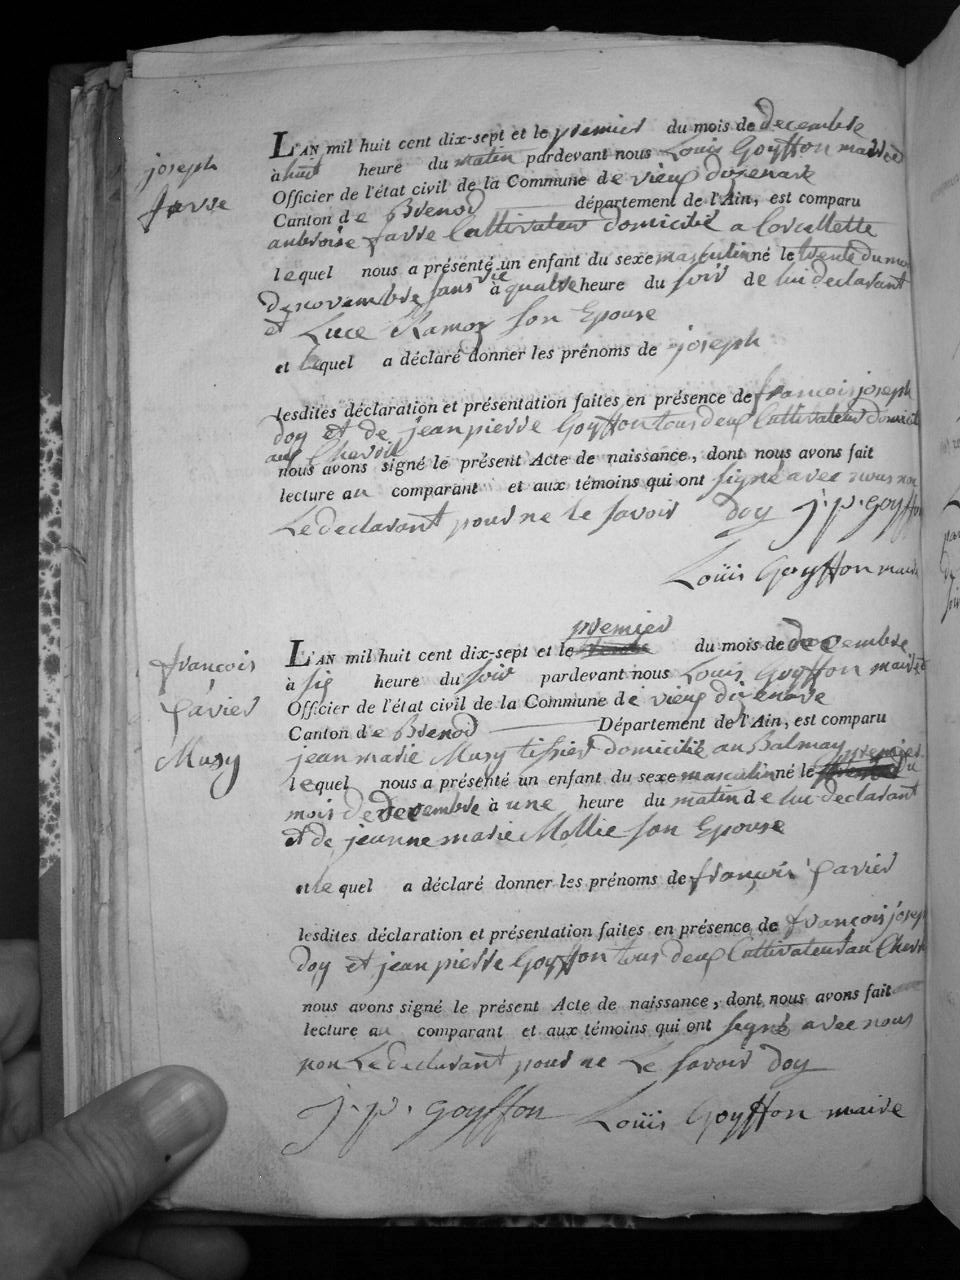 joseph
farre
L'AN mil huit cent dix-sept et le premier du mois de decembre
à huit heure du matin pardevant nous Louis Goÿffon maire et
Officier de l'état civil de la Commune de vieux dizenave
Canton de Brenod département de l'Ain, est comparu
ambroise farre Cultivateur domicilié a Corcellette
lequel nous a présenté un enfant du sexe masculin né le trente du moi
de novembre à quatre heure du soir de lui declarant
et Luce Ramoz son Epouse
et lequel a déclaré donner les prénoms de joseph
lesdites déclaration et présentation faites en présence de françois joseph
doy et de jeanpierre Goyffon tous deux Cultivateur domicil
aux
nous avons signé le présent Acte de naissance, dont nous avons fait
lecture au comparant et aux témoins qui ont signé avec nous non
Le declarant pour ne le savoir doy j. p. goyffon
Loüis Goyffon maire
françois
Xavier
Musy
L'AN mil huit cent dix-sept et le premier du mois de decembre
à six heure du soir pardevant nous Louis Goyffon maire et
Officier de l'état civil de la Commune de vieux dizenave
Canton de Brenod Département de l'Ain, est comparu
jean marie Musy tissier domicilié au Balmay
lequel nous a présenté un enfant du sexe masculin né le premier du
mois de decembre à une heure du matin de lui declarant
et de jeanne marie Mollie son Epouse
lequel a déclaré donner les prénoms de françois Xavier
lesdites déclaration et présentation faites en présence de françois joseph
doy et jean pierre Goyffon tous deux Cultivateur au
nous avons signé le présent Acte de naissance, dont nous avons fait
lecture au comparant et aux témoins qui ont signé avec nous
non Le declarant pour ne Le savoir doy
j. p. goyffon Loüis Goyffon maire